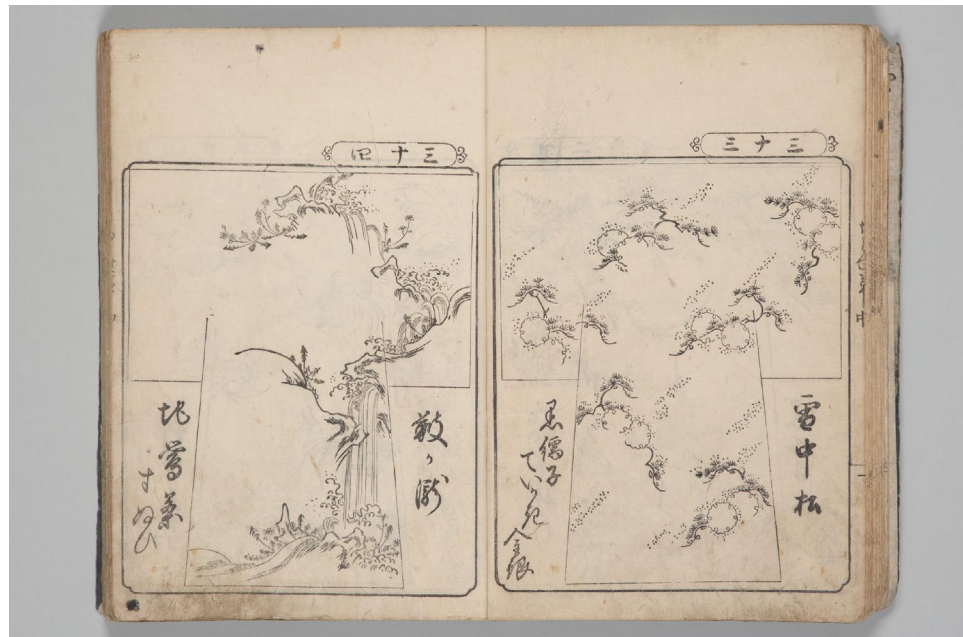 三十三
雪中松
黒繻子
金銀
三十四
鼓ヶ瀧
地鶯茶
すぬひ